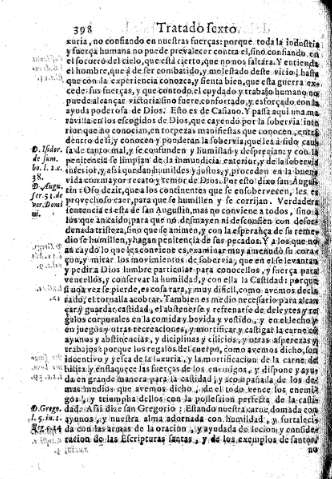 398 Tratado sexto.
xuria, no confiando en nuestras fuerças: porque toda la industria
y fuerça humana no puede prevalecer contra el, sino confiando en
el socorro del cielo, que està cierto, que no nos faltàra. Y entienda
el hombre, que à de ser combatido, y molestado deste vicio, hasta
que con la experiencia conozca, y sienta bien, que esta guerra ex-
cede sus fuerças, y que con todo el cuydado y trabajo humano no
puede alcançar victoria, sino fuere confortado, y esforçado con la
ayuda poderosa de Dios. Esto es de Casiano. Y passa aqui una ma-
ravilla en los escogidos de Dios, que cayendo por la sobervia inte-
rior que no conocian, en torpezas manifiestas que conocen, entra
dentro de si, y conocen y ponderan la sobervia, que les à sido cau-
D. Isidor. sa de tanto mal, y se confunden y humillan, y desprecian; y con la
de sum. penitencia se limpian de la inmundicia exterior, y de la sobervia
bo. l. 2. c. interior, y assi quedan humildes y justos, y proceden en la buena
38. vida con mayor recato y temor de Dios. Por esto dixo san Augus-
D. Augu. tin: Oso dezir, que a los continentes que se ensobervecen, les es
ser. 53. de provechoso caer, para que se humillen y se corrijan. Verdadera
ver. Domi sentencia es esta de san Augustin, mas no conviene a todos, sino à
ni. los que an caìdo, para que no desmayen ni desconfien con desor-
denada tristeza, sino que se animen, y con la esperança de su reme-
dio se humillen, y hagan penitencia de sus pecados. Y a los que no
an caydo lo que les conviene es, examinar muy a menudo su cora-
çon, y mirar los movimientos de sobervia, que en el se levantan
y pedir a Dios lumbre particular para conocellos, y fuerça para
vencellos, y conservar la humildad, y con ella la Castidad: porque
si una vez se pierde, es cosa rara, y muy dificil, como avemos decla-
rado, el tornalla a cobrar. Tambien es medio necessario para alcan-
çar y guardar castidad, el abstenerse y refrenarse de deleytes y re-
galos corporales en la comida y bevida y vestido, y en el lecho y
en juegos y otras recreaciones, y mortificar y castigar la carne con
ayunos y abstinencias, y diciplinas y cilicios, y otras asperezas y
trabajos: porque los regalos del cuerpo, como avemos dicho, son
incentivo y yesca de la luxuria, y la mortificacion de la carne de-
bilita y enflaquece las fuerças de los enemigos, y dispone y ayu-
da en grande manera para la castidad, y acompañada de los de-
mas medios que avemos dicho, de el todo vence los enemi-
gos, y triumpha dellos con la possession perfecta de la casti-
D. Grego. dad. Assi dize san Gregorio: Estando nuestra carne domada con
ayunos, y nuestra alma adornada con humildad, y fortaleci-
da con las armas de la oracion, y ayudada de locion y conside-
racion de las Escripturas santas, y de los exemplos de santos,
no